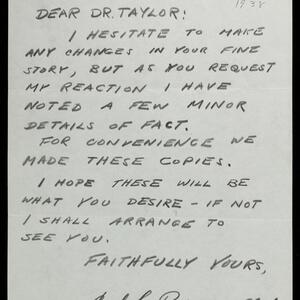 1938
DEAR DR. TAYLOR:
I HESITATE TO MAKE
ANY CHANGES IN YOUR FINE
STORY, BUT AS YOU REQUEST
MY REACTION I HAVE
NOTED A FEW MINOR
DETAILS OF FACT.
FOR CONVENIENCE WE
MADE THESE COPIES.
I HOPE THESE WILL BE
WHAT YOU DESIRE - IF NOT
I SHALL ARRANGE TO
SEE YOU.
FAITHFULLY YOURS,